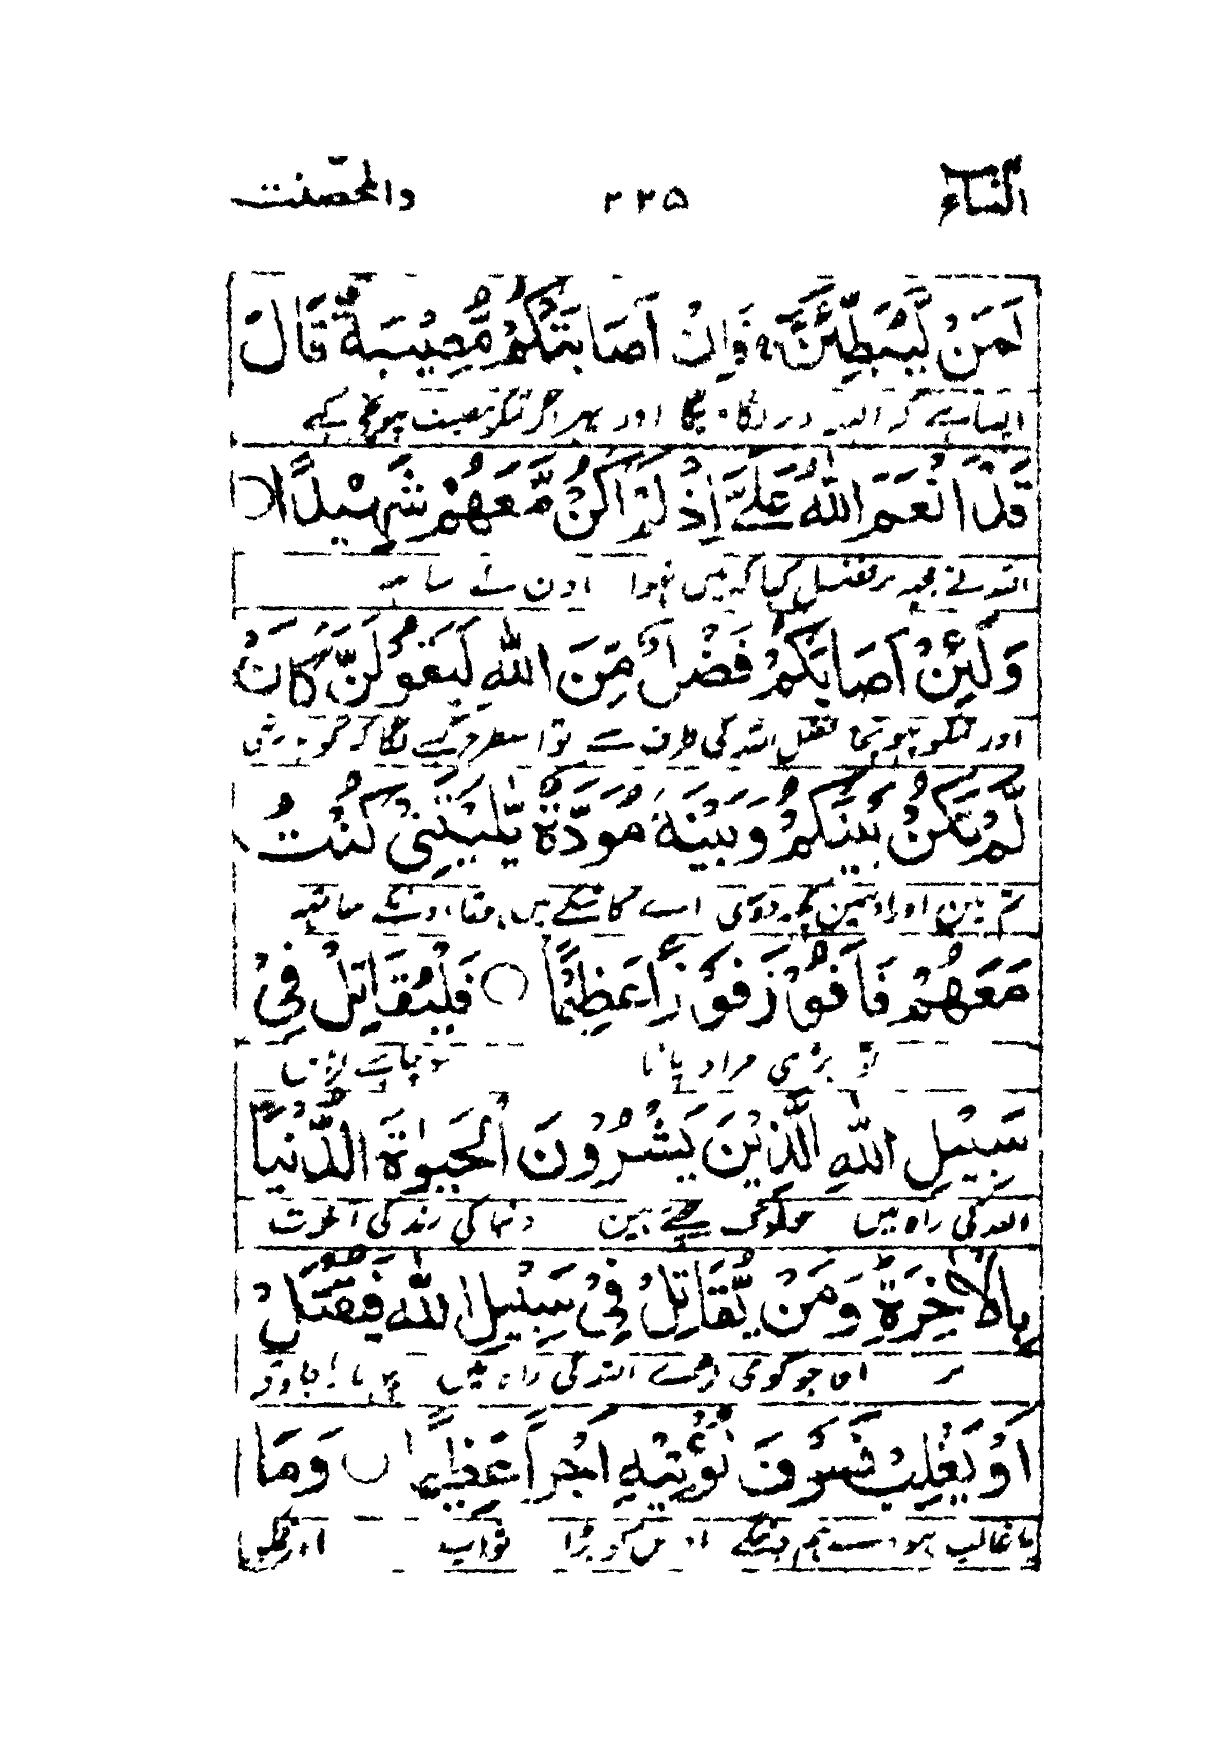 النساء ۲۲۵ والمحصنت
لَمَنْ لَّيُبَطِّئَنَّ ۚ فَاِنْ اَصَابَتْكُمْ مُّصِيْبَةٌ قَالَ
ایسا ہے کہ البتہ دیر لگاویگا اور پھر اگر تمکو مصیبت پہونچے کہے
قَدْ اَنْعَمَ اللّٰهُ عَلَيَّ اِذْ لَمْ اَكُنْ مَّعَهُمْ شَهِيْدًا ○
اللہ نے مجھ پر فضل کیا کہ میں نہوا اون کے ساتھ
وَلَئِنْ اَصَابَكُمْ فَضْلٌ مِّنَ اللّٰهِ لَيَقُوْلَنَّ كَاَنْ
اور تمکو پہونچا فضل اللہ کی طرف سے تو اسطرح کہنے لگا کہ گویا نہ تھی
لَّمْ تَكُنْ بَيْنَكُمْ وَبَيْنَهٗ مَوَدَّةٌ يّٰلَيْتَنِيْ كُنْتُ
تم میں اور اوسمین کچھ دوستی اے کاشکے میں ہوتا اونکے ساتھ
مَعَهُمْ فَاَفُوْزَ فَوْزًا عَظِيْمًا ○ فَلْيُقَاتِلْ فِيْ
تو بڑی مراد پاتا سو چاہئے لڑیں
سَبِيْلِ اللّٰهِ الَّذِيْنَ يَشْرُوْنَ الْحَيٰوةَ الدُّنْيَا
اللہ کی راہ میں جو لوگ بیچتے ہین دنیا کی زندگی آخرت
بِالْاٰخِرَةِ وَمَنْ يُّقَاتِلْ فِيْ سَبِيْلِ اللّٰهِ فَيُقْتَلْ
پر اور جو کوئی لڑے اللہ کی راہ میں پھر مارا جاوے
اَوْ يَغْلِبْ فَسَوْفَ نُؤْتِيْهِ اَجْرًا عَظِيْمًا ○ وَمَا
یا غالب ہووے ہم دینگے اوس کو بڑا ثواب اور تمکو